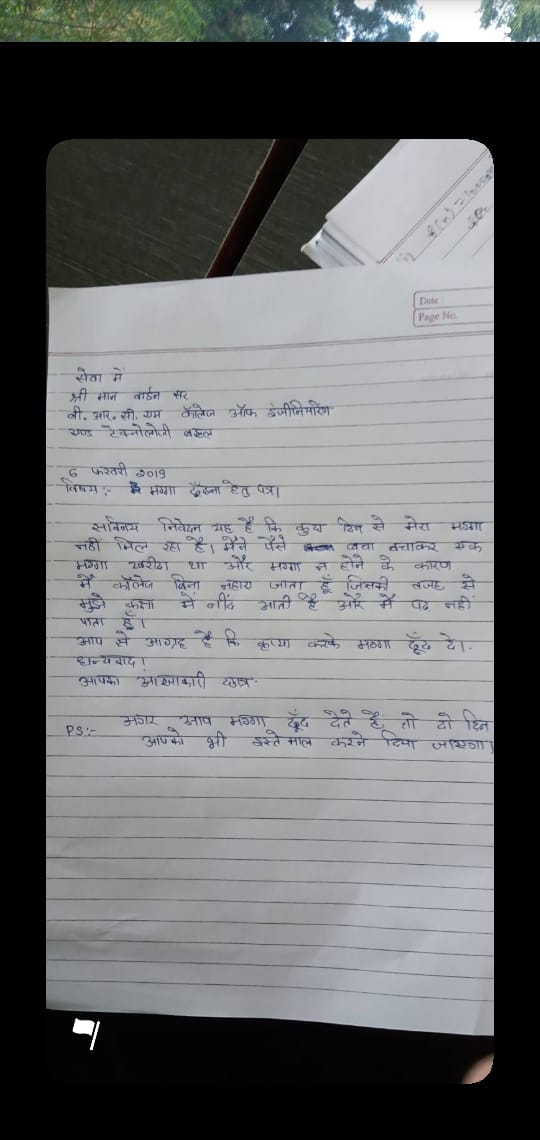 Date :
Page No.
सेवा में
श्री मान वार्डन सर
बी. आर. सी. एम कॉलेज ऑफ इंजीनियरिंग
एण्ड टेक्नोलोजी बहल
6 फरवरी 2019
विषय :- मग्गा ढूँढना हेतु पत्र।
सविनय निवेदन यह है कि कुछ दिन से मेरा मग्गा
नहीं मिल रहा है। मैंने पैसे बचा बचाकर एक
मग्गा खरीदा था और मग्गा न होने के कारण
मैं कॉलेज बिना नहाय जाता हूँ जिसकी वजह से
मुझे कक्षा में नींद आती है और मैं पढ़ नहीं
पाता हूँ।
आप से आग्रह है कि कृप्या करके मग्गा ढूँढ दे।
धन्यवाद!
आपका आज्ञाकारी छात्र
PS:- अगर आप मग्गा ढूँढ देते हैं तो दो दिन
आपको भी इस्तेमाल करने दिया जाएगा।